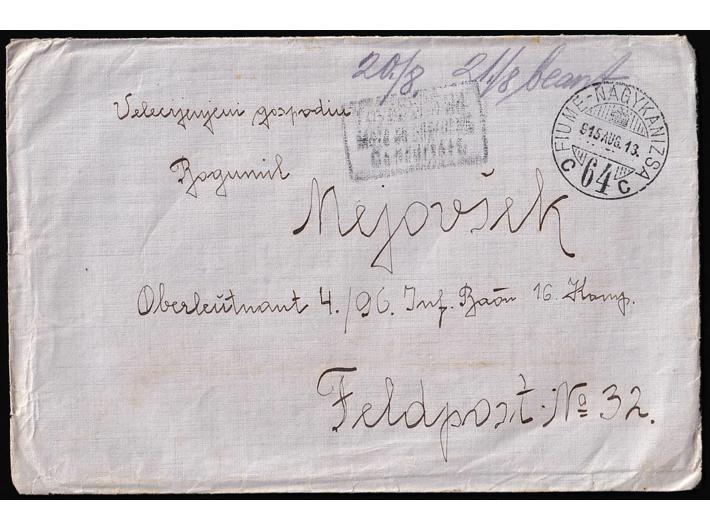 20./8. 21./8 beant
FIUME-NAGYKANIZSA
915 AUG. 13.
C 64 C
Velecijenjeni gospodin
Bogumil
Mejovšek
Oberleutnant 4./96. Inf. Baon 16. Komp.
Feldpost № 32.